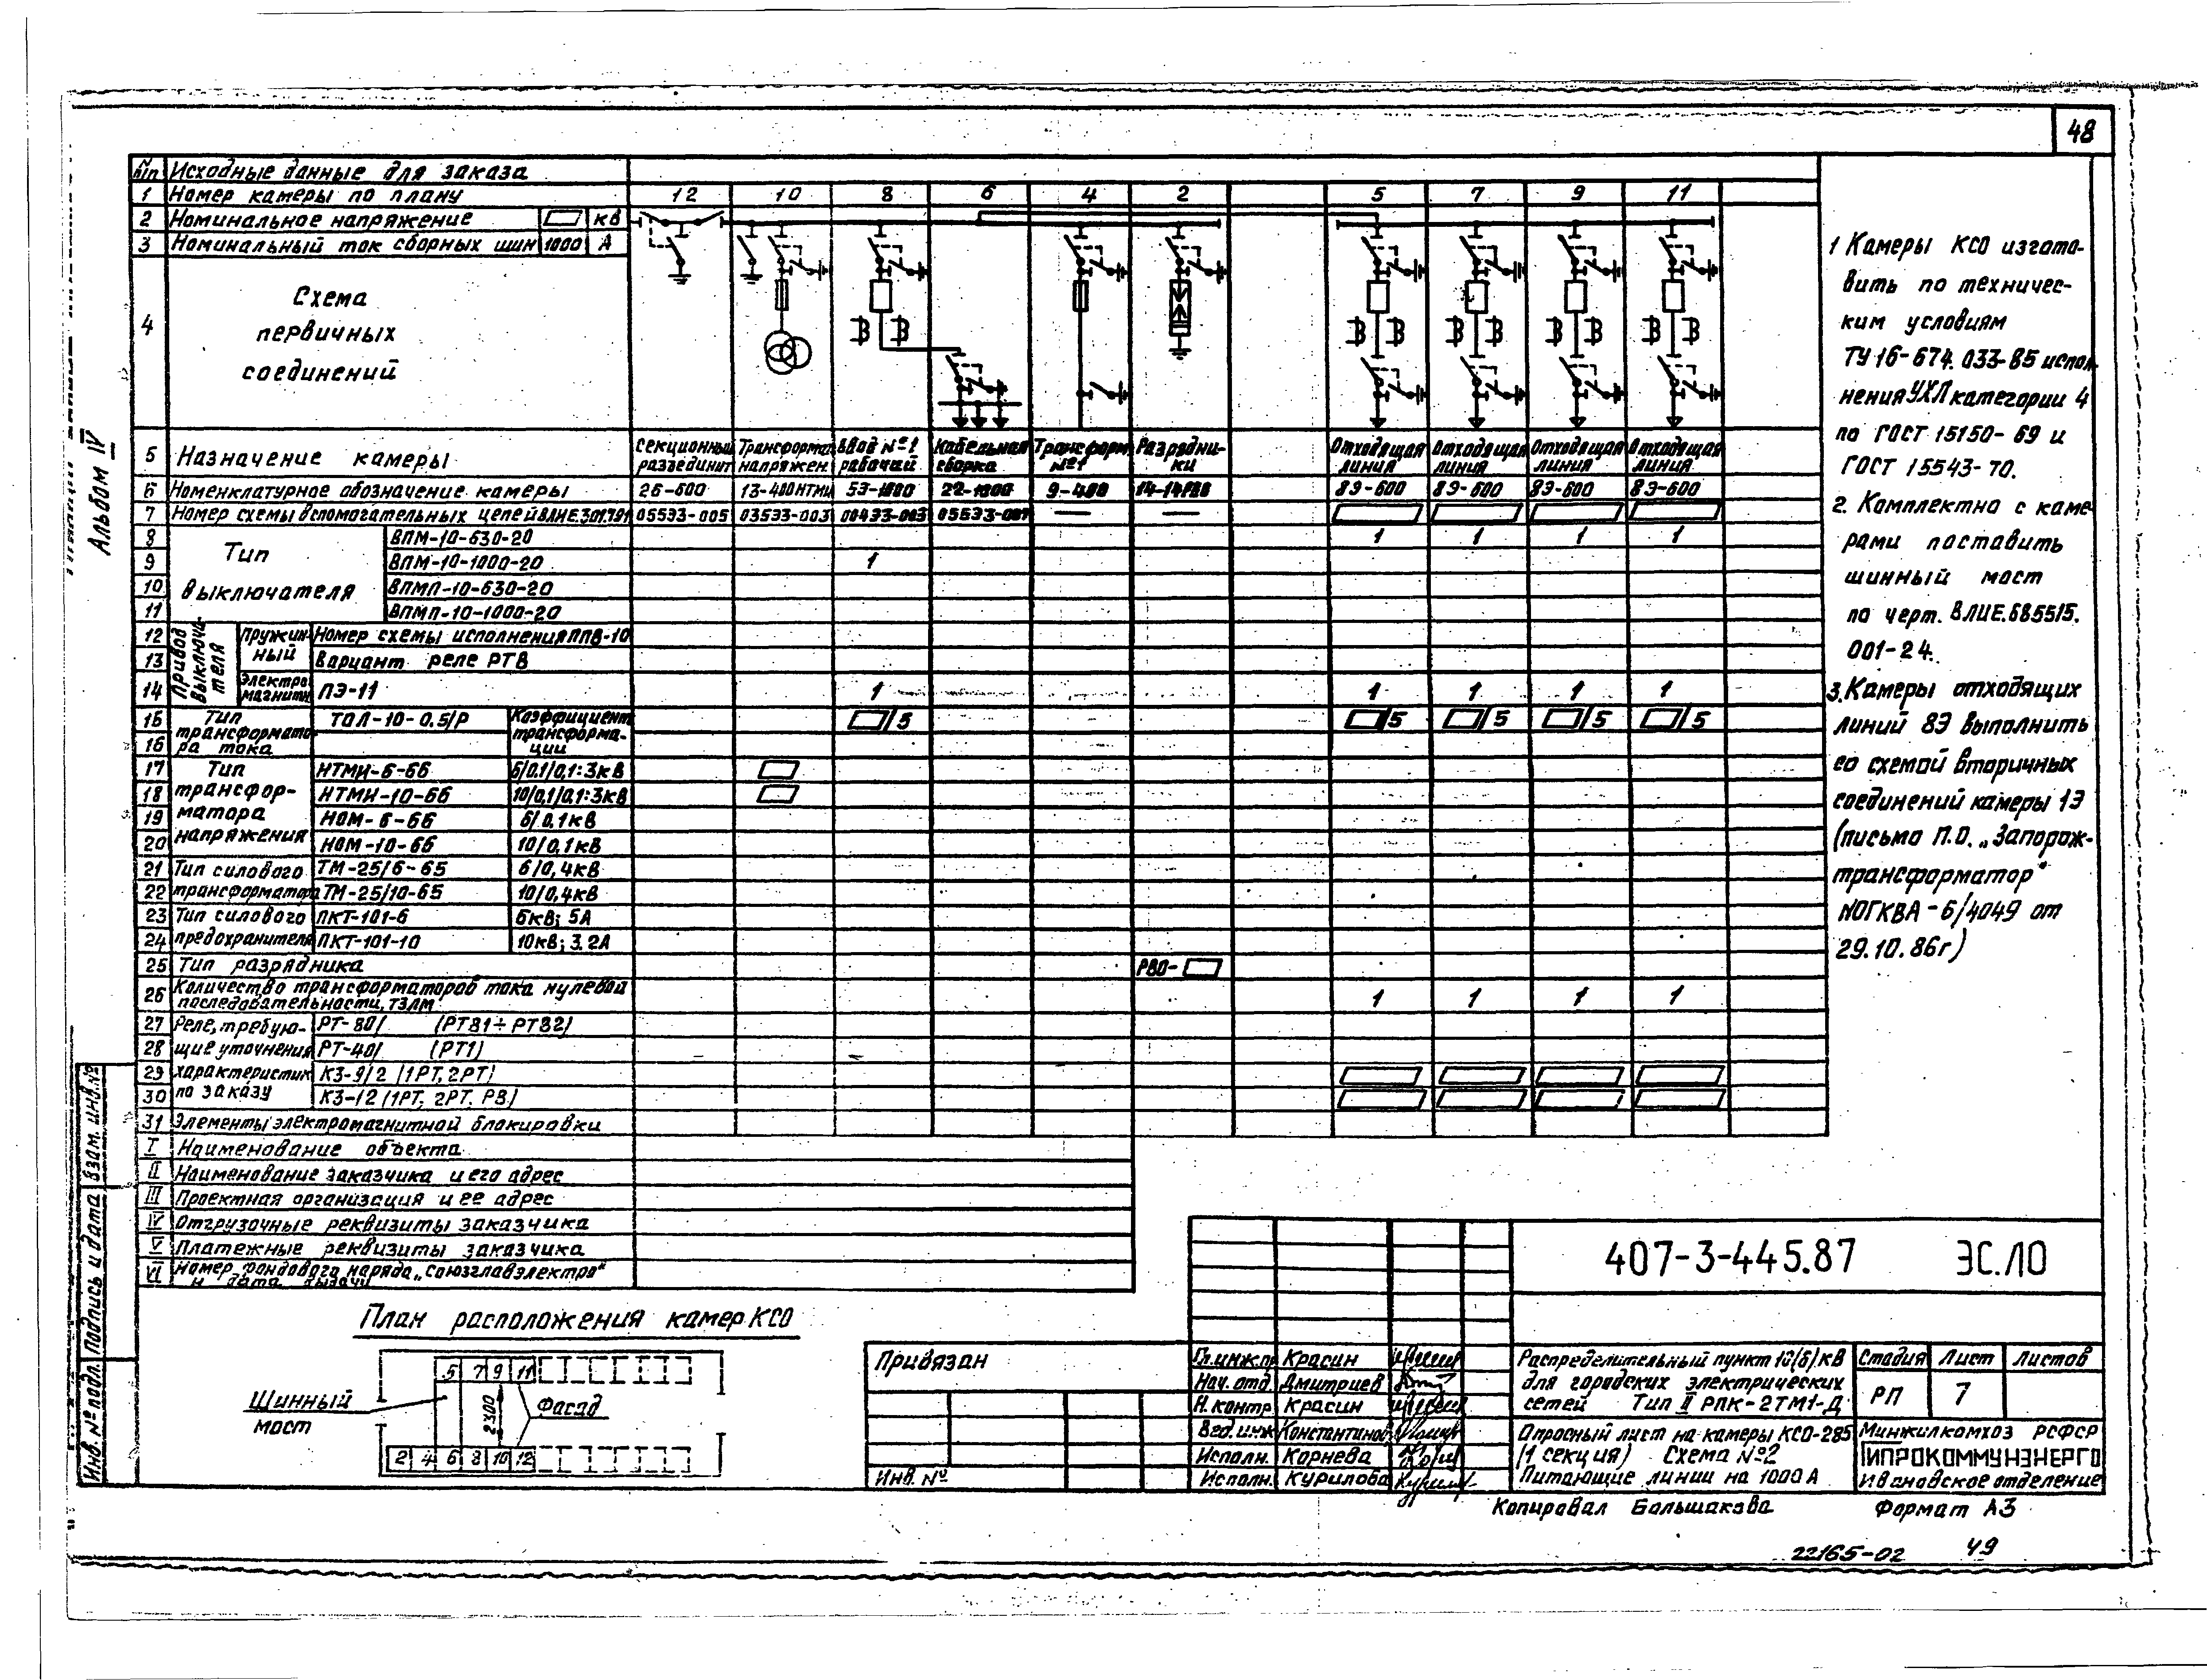 48
N п/п Исходные данные для заказа
1 Номер камеры по плану 12 10 8 6 4 2 5 7 9 11
2 Номинальное напряжение кВ
3 Номинальный ток сборных шин 1000 А
4 Схема
первичных
соединений
5 Назначение камеры
Секционный разъединит
Трансформат напряжен
Ввод №1 рабочий
Кабельная сборка
Трансформ. №1
Разрядни-ки
Отходящая линия
Отходящая линия
Отходящая линия
Отходящая линия
6 Номенклатурное обозначение камеры 26-600 13-400НТМИ 5Э-1000 22-1000 9-400 8Э-600 8Э-600 8Э-600 8Э-600
7 Номер схемы вспомогательных цепей ВЛИЕ.301.791 05593-005 03593-003 00493-003 — —
Тип
выключателя
8 ВПМ-10-630-20 1 1 1 1
9 ВПМ-10-1000-20 1
10 ВПМП-10-630-20
11 ВПМП-10-1000-20
Привод выключа-теля
Пружин-ный
12 Номер схемы исполнения ППВ-10
13 Вариант реле РТВ
Электро магнитн
14 ПЭ-11 1 1 1 1 1
15 Тип трансформато ра тока ТОЛ-10-0.5/Р Коэффициент трансформа-ции /5 /5 /5 /5 /5
16
Тип
трансфор-
матора
напряжения
17 НТМИ-6-66 6/0.1/0.1:3кВ
18 НТМИ-10-66 10/0.1/0.1:3кВ
19 НОМ-6-66 6/0.1кВ
20 НОМ-10-66 10/0.1кВ
21 Тип силового ТМ-25/6-65 6/0,4кВ
22 трансформатора ТМ-25/10-65 10/0,4кВ
23 Тип силового ПКТ-101-6 6кВ; 5А
24 предохранителя ПКТ-101-10 10кВ; 3.2А
25 Тип разрядника РВО-
26 Количество трансформаторов тока нулевой
последовательности, ТЗЛМ 1 1 1 1
27 Реле, требую- РТ-80/ (РТ81÷РТ82)
28 щие уточнения РТ-40/ (РТ1)
29 характеристик КЗ-9/2 (1РТ, 2РТ)
30 по заказу КЗ-12 (1РТ, 2РТ, РВ)
31 Элементы электромагнитной блокировки
I Наименование объекта
II Наименование заказчика и его адрес
III Проектная организация и ее адрес
IV Отгрузочные реквизиты заказчика
V Платежные реквизиты заказчика
VI Номер фондового наряда „Союзглавэлектро"
и дата выдачи
1 Камеры КСО изгото-
вить по техничес-
ким условиям
ТУ 16-674.033-85 испол
нения УХЛ категории 4
по ГОСТ 15150-69 и
ГОСТ 15543-70.
2. Комплектно с каме
рами поставить
шинный мост
по черт. ВЛИЕ.685515.
001-24.
3. Камеры отходящих
линий 8Э выполнить
со схемой вторичных
соединений камеры 1Э
(письмо П.О. „Запорож-
трансформатор"
№ОГКВА-6/4049 от
29.10.86г)
Альбом IV
Взам. инв.№
Подпись и дата
Инв. № подл.
План расположения камер КСО
5 7 9 11
Шинный
мост
2300
Фасад
2 4 6 8 10 12
Привязан
Инв. №
407-3-445.87 ЭС.ЛО
Гл.инж.пр Красин
Нач. отд. Дмитриев
Н. контр. Красин
Вед. инж Константинов
Исполн. Корнева
Исполн. Курилова
Распределительный пункт 10(6) кВ
для городских электрических
сетей Тип II РПК-2ТМ1-Д
Стадия Лист Листов
РП 7
Опросный лист на камеры КСО-285
(1 секция) Схема №2
Питающие линии на 1000 А
Минжилкомхоз РСФСР
ГИПРОКОММУНЭНЕРГО
Ивановское отделение
Копировал Большакова Формат А3
22165-02 49